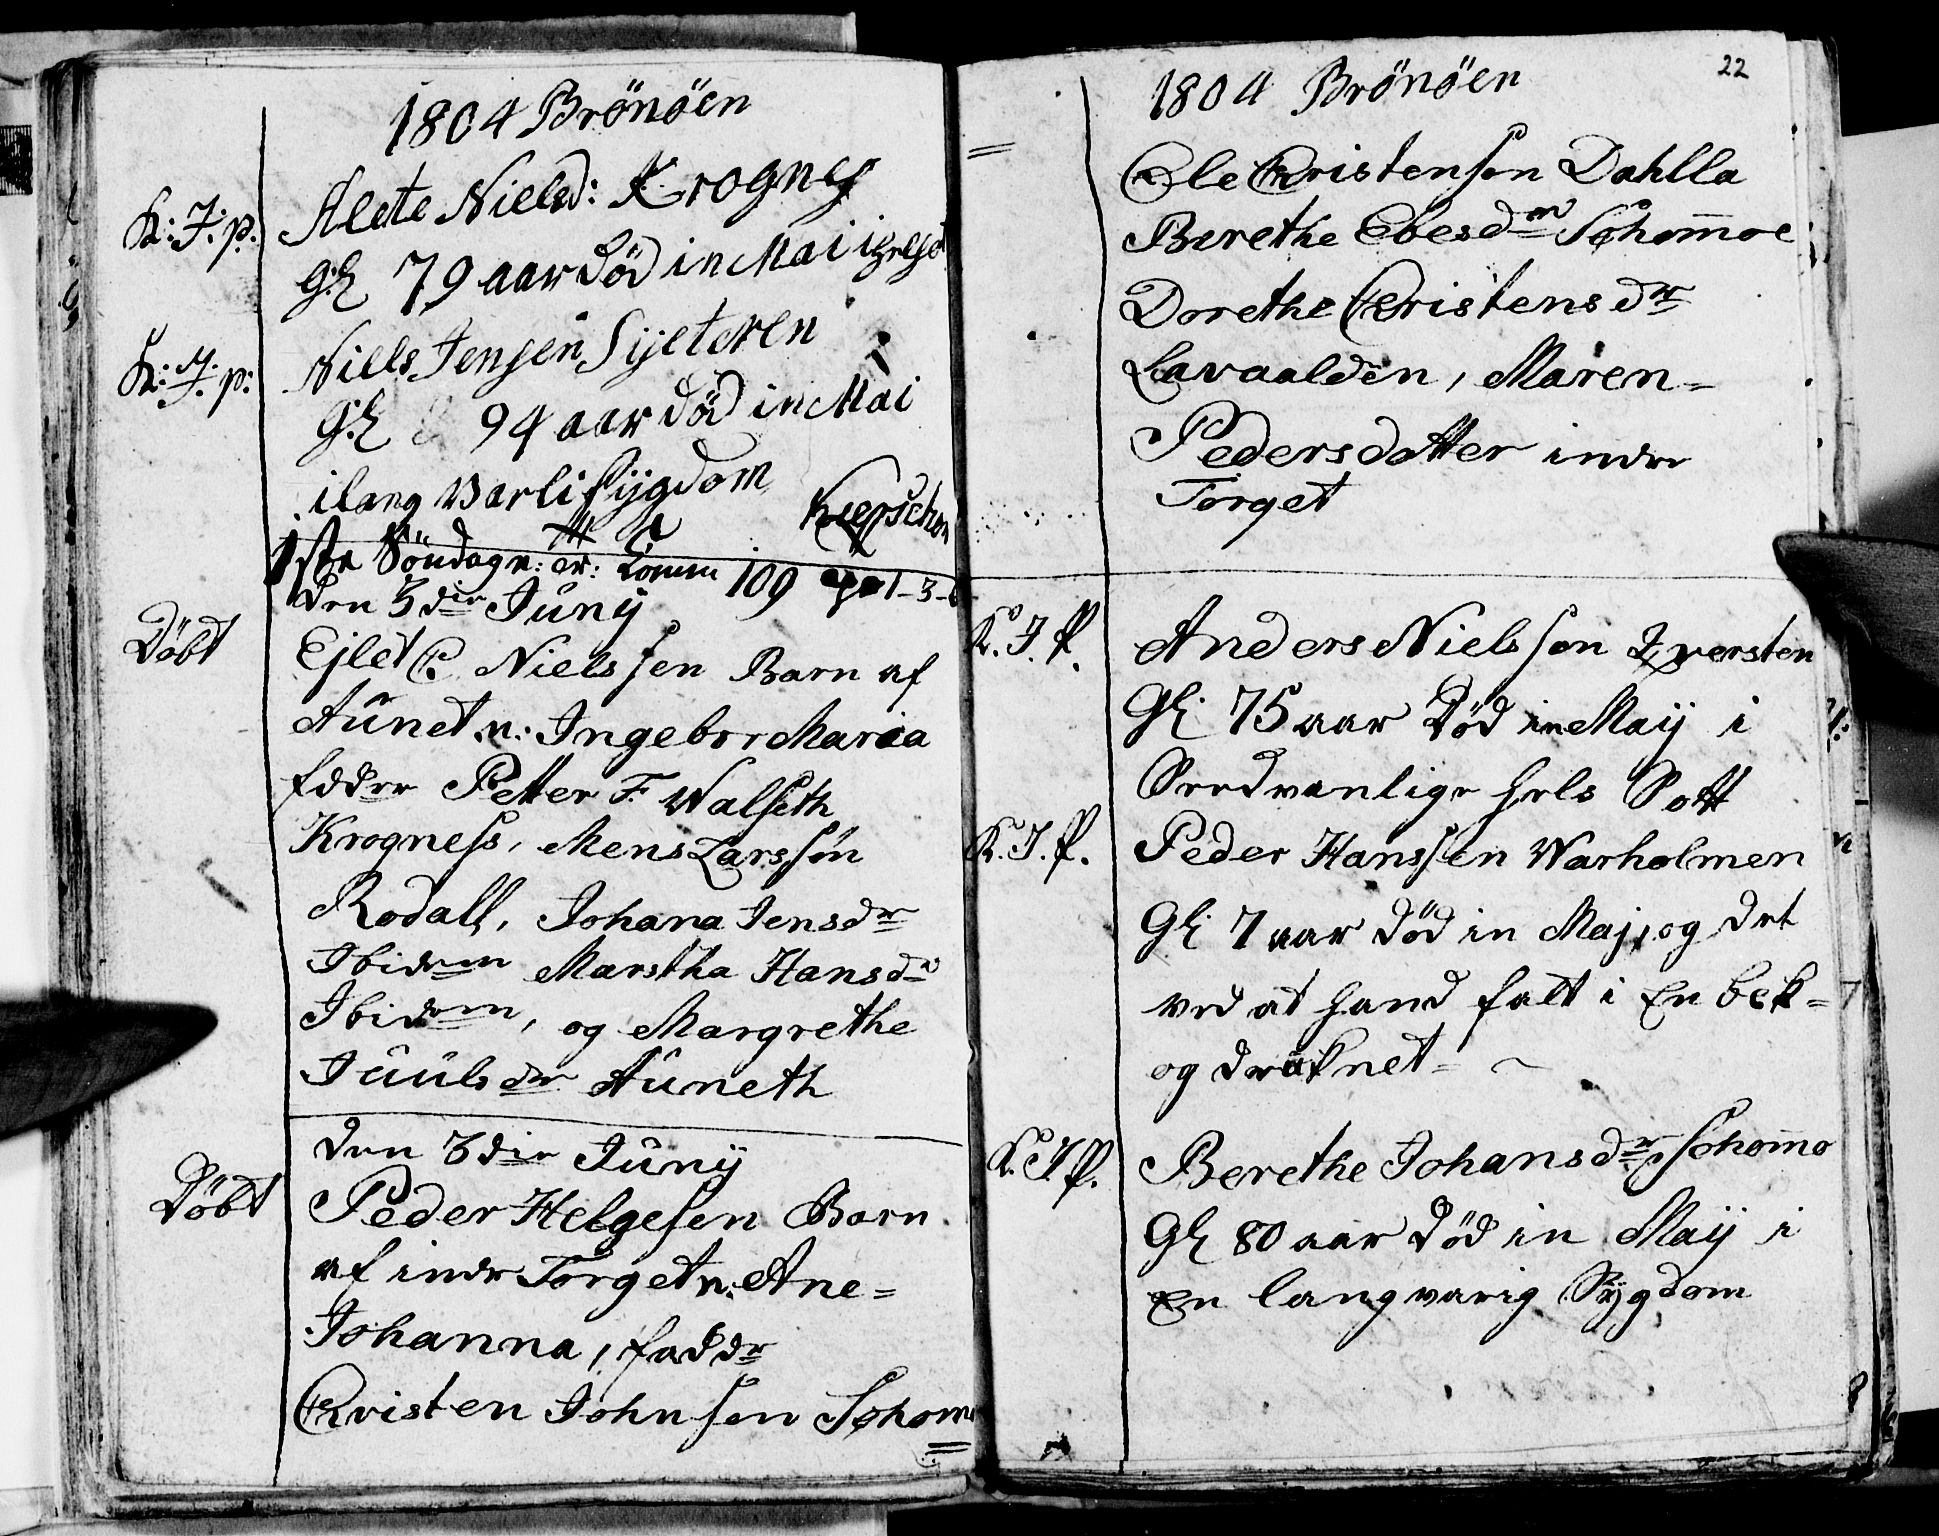 1804 Brönöen
K: J: p:
Alete Nielsd: Krognes
Gl 79 aar död in Mai i
K: J: p:
Niels Jensen Sÿeteren
Gl 94 aar död in Mai
i lang varli sÿgdom
1ste Söndag e: Comm 109 1-3-
den 3die Junÿ
Döbt
Ejlet C Nielssen Barn af
Aunet n: Ingebor Maria
fadder Petter F. Walseth
Krogness, Mens Larssön
Rodall, Johana Jensdr
Ibidem Marstha Hansdr
Ibidem, og Margrethe
Juulsdr Auneth
den 3die Junÿ
Döbt
Peder Helgesen Barn
af indre Torget n: Ane=
Johanna, faddr
Christen Johnsen Sohom
22
1804 Brönöen
Ole Christensen Dahlla
Berethe Ebesdr Sohomoe
Dorethe Christensdr
Lavaalden, Maren=
Pedersdatter indre
Torget
K. J. P.
Anders Nielssen Qversten
Gl: 75 aar Död in Maÿ i
Sædvanlige hels Sott
K. J. P.
Peder Hanssen Warholmen
Gl: 7 aar död in Maj, og det
ved at hand falt i En bek=
og druknet=
K. J. P.
Berethe Johansdr Sohomo
Gl 80 aar Död in Maÿ i
En langvarig Sygdom